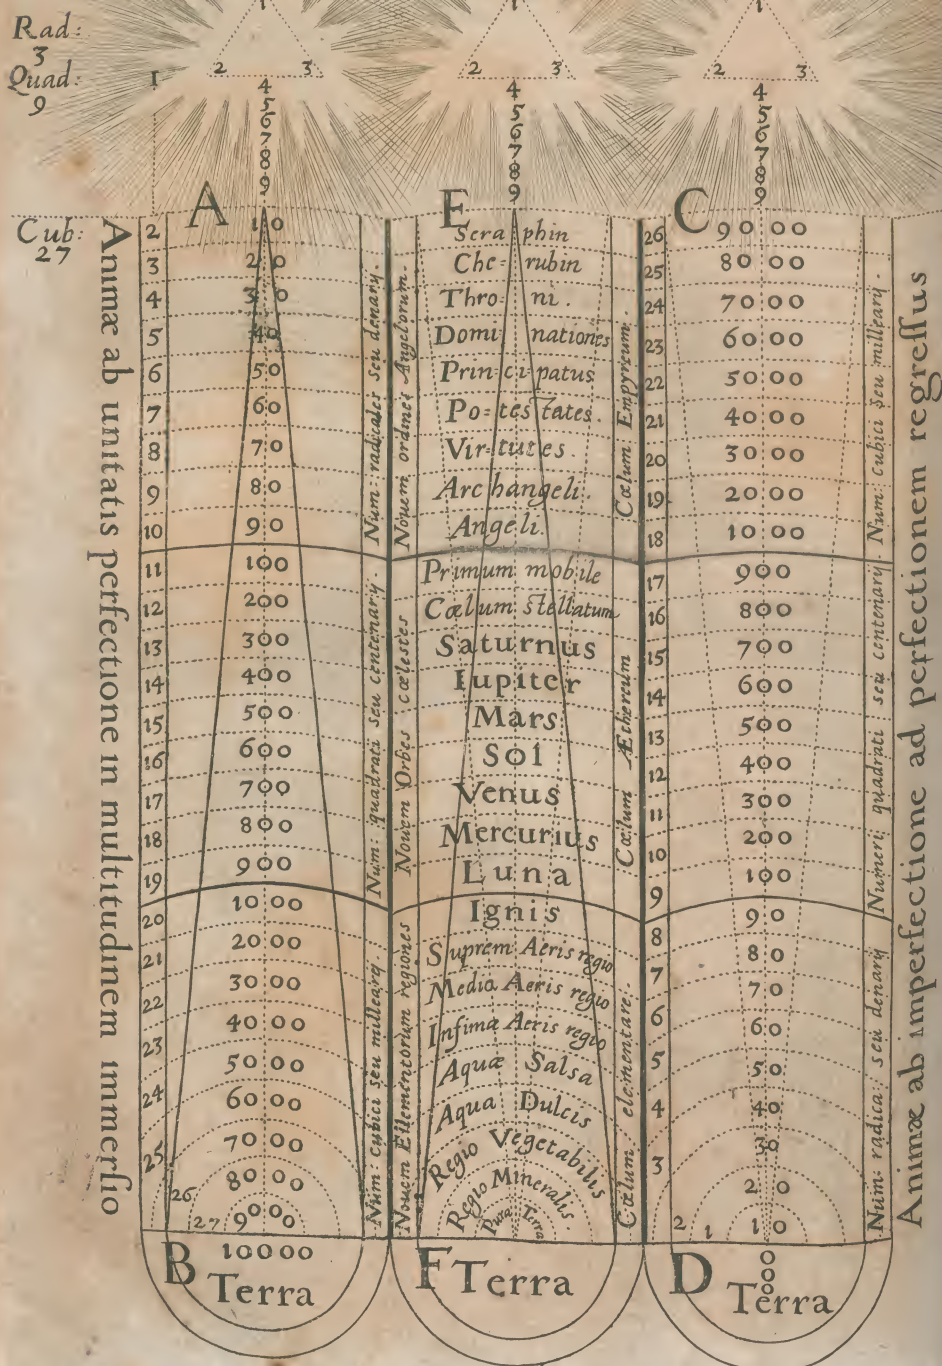 Rad:
3
Quad:
9
Cub:
27
Animæ ab unitatis perfectione in multitudinem immersio
1
2
3
4
5
6
7
8
9
10
11
12
13
14
15
16
17
18
19
20
21
22
23
24
25
26
27
1
2 3
4
5
6
7
8
9
A
10
20
30
40
50
60
70
80
90
100
200
300
400
500
600
700
800
900
10 00
20 00
30 00
40 00
50 00
60 00
70 00
80 00
90 00
B
10000
Terra
Num: radicales seu denary.
Num: quadrati seu centenary.
Num: cubici seu milleary
Nouem ordines Angelorum.
Nouem Orbes cælestes
Nouem Ellementorum regiones
1
2 3
4
5
6
7
8
9
E
Sera phin
Che- rubin
Thro- ni.
Domi nationes
Prin-ci-patus
Po-tes tates.
Vir-tutes.
Arc hangeli.
Angeli.
Primum mobile
Cælum stellatum
Saturnus
Iupiter
Mars
Sol
Venus
Mercurius
Luna
Ignis
Suprem Aeris regio
Media Aeris regio
Infima Aeris regio
Aquæ Salsa
Aqua Dulcis
Regio Vegetabilis
Regio Mineralis
Pura Terra
F
Terra
Cælum Empyreum.
Cælum Æthereum
Cælum elementare.
26
25
24
23
22
21
20
19
18
17
16
15
14
13
12
11
10
9
8
7
6
5
4
3
2
1
1
2 3
4
5
6
7
8
9
C
90 00
80 00
70 00
60 00
50 00
40 00
30 00
20 00
10 00
900
800
700
600
500
400
300
200
100
90
80
70
60
50
40
30
20
10
D
0
0
0
Terra
Num: cubici seu milleary.
Numeri quadrati seu centenary.
Num: radica: seu denary
Animæ ab imperfectione ad perfectionem regreſſus